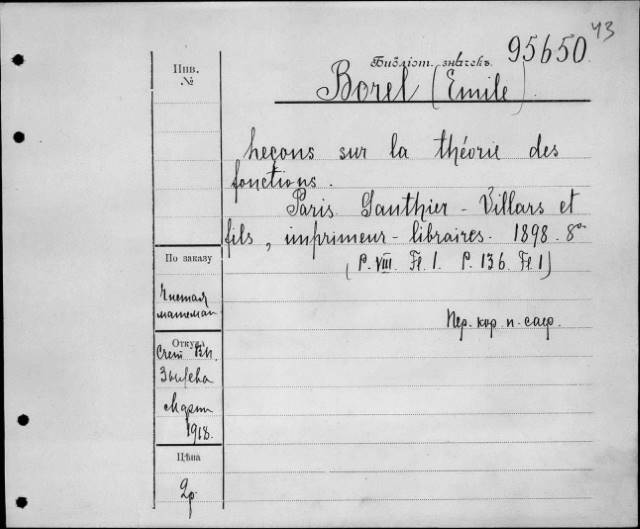 43
95650
Библіот. значекъ
Инв.
№
Borel (Emile).
Leçons sur la théorie des
fonctions.
Paris Gauthier-Villars et
fils, imprimeur-libraires. 1898. 8º
(P. VIII. Fl. 1. P. 136. Fl 1)
По заказу
Чистая
математ
Пер. кор. п. саф.
Откуда
Счет Вл.
Март
1918.
Цѣна
2р.